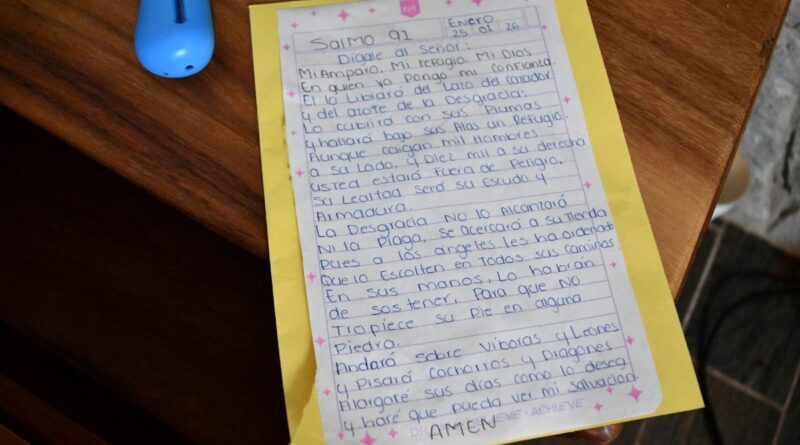 Enero
Salmo 91
25 01 26
Digale al Señor:
Mi Amparo, Mi refugio, Mi Dios
En quien yo Pongo mi confianza
El lo Librará del Lazo del cazador
y del azote de la Desgracia;
Lo cubrirá con sus Plumas
y hallará bajo sus Alas un Refugio.
Aunque caigan mil Hombres
a su Lado, y Diez mil a su derecha
usted estará Fuera de Peligro,
su Lealtad será su Escudo y
Armadura
La Desgracia No lo Alcanzará
Ni la Plaga, se Acercará a su Tienda
Pues a los ángeles les ha ordenado
Que lo Escolten en Todos sus Caminos
En sus manos, Lo habrán
de sostener, Para que No
Tropiece su Pie en alguna
Piedra.
Andará sobre Víboras y Leones
y Pisará Cachorros y Dragones
Alargaré sus días como lo desea
y haré que Pueda ver mi salvación.
ACHIEVE
AMEN